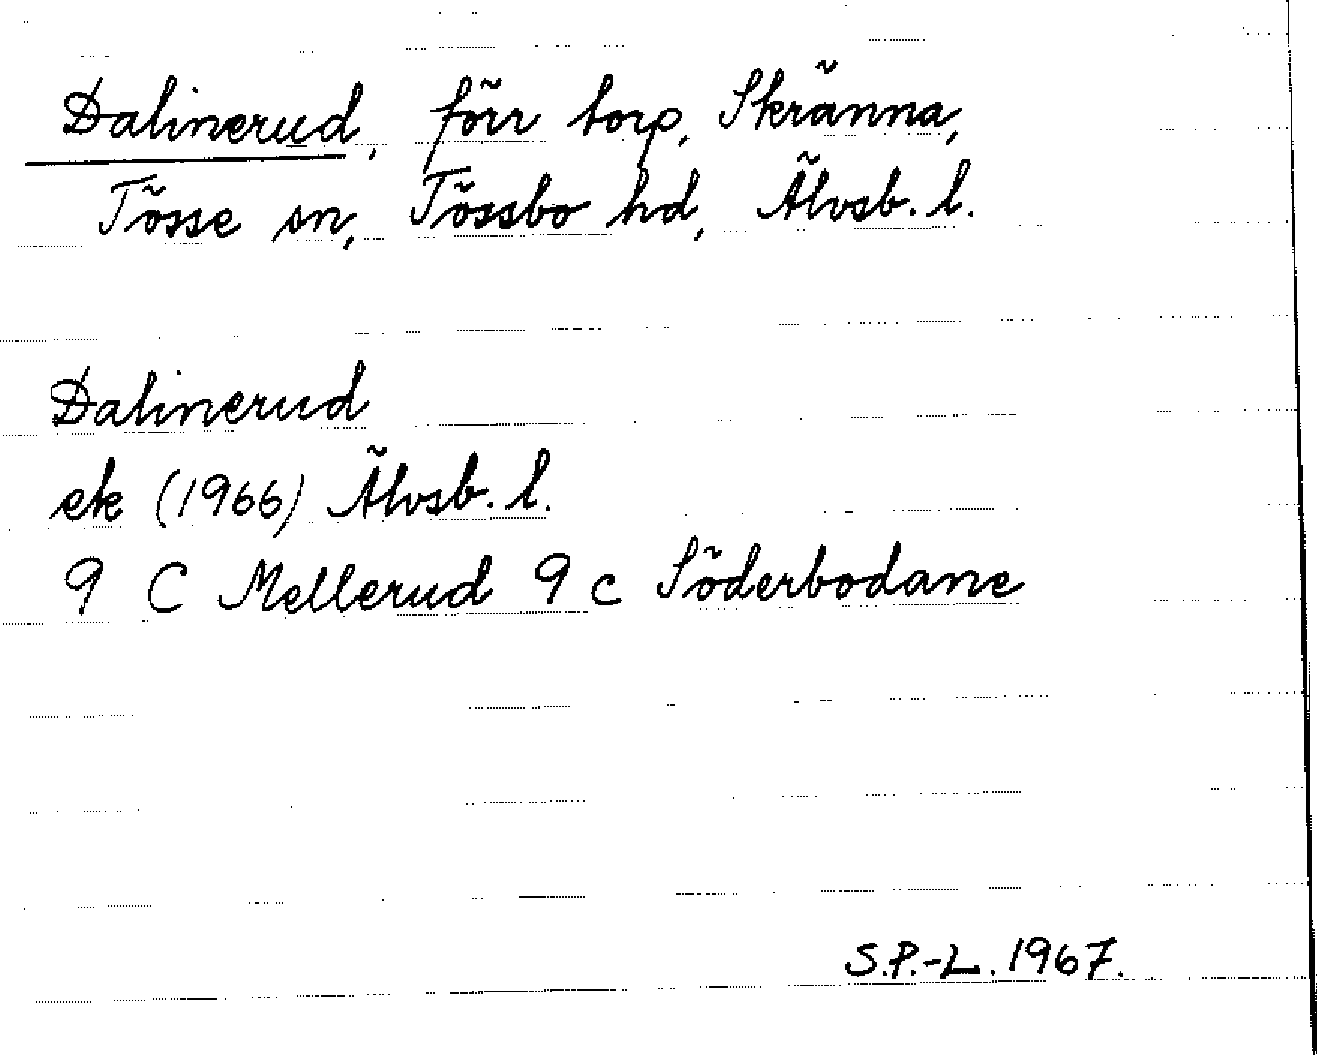 Dalinerud, förr torp, Skränna,
Tösse sn, Tössbo hd, Älvsb. l.
Dalinerud
ek (1966) Älvsb. l.
9 C Mellerud 9 c Söderbodane
S.P.-L. 1967.